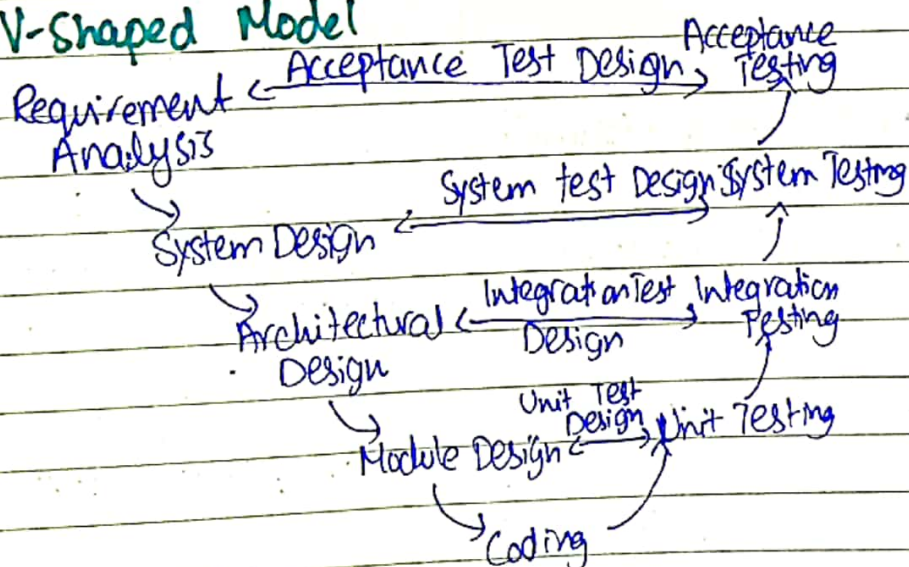 V-Shaped Model
Requirement Analysis
Acceptance Test Design
Acceptance Testing
System Design
System test Design
System Testing
Architectural Design
Integration Test Design
Integration Testing
Module Design
Unit Test Design
Unit Testing
Coding